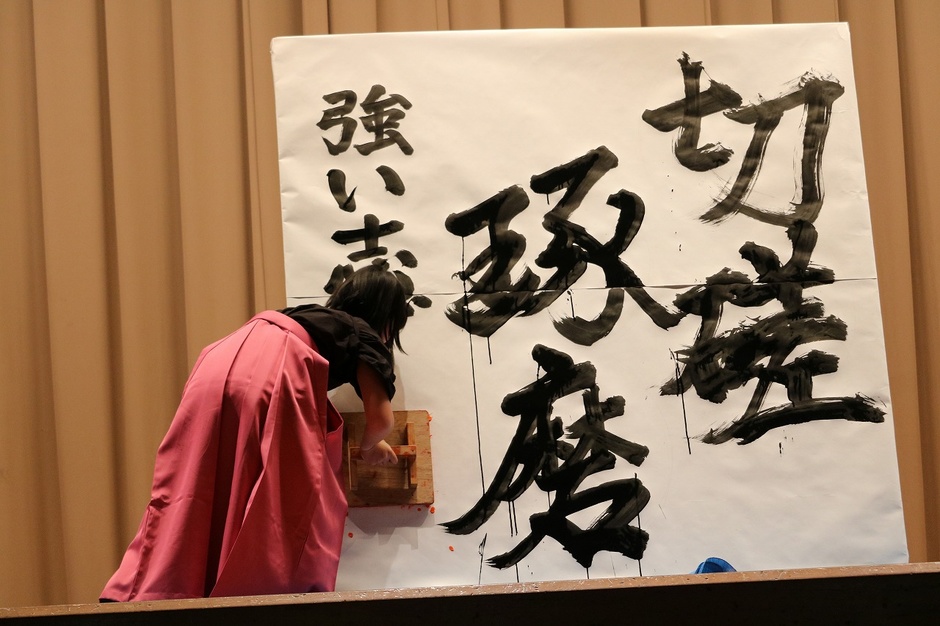 切磋
琢磨
強い志